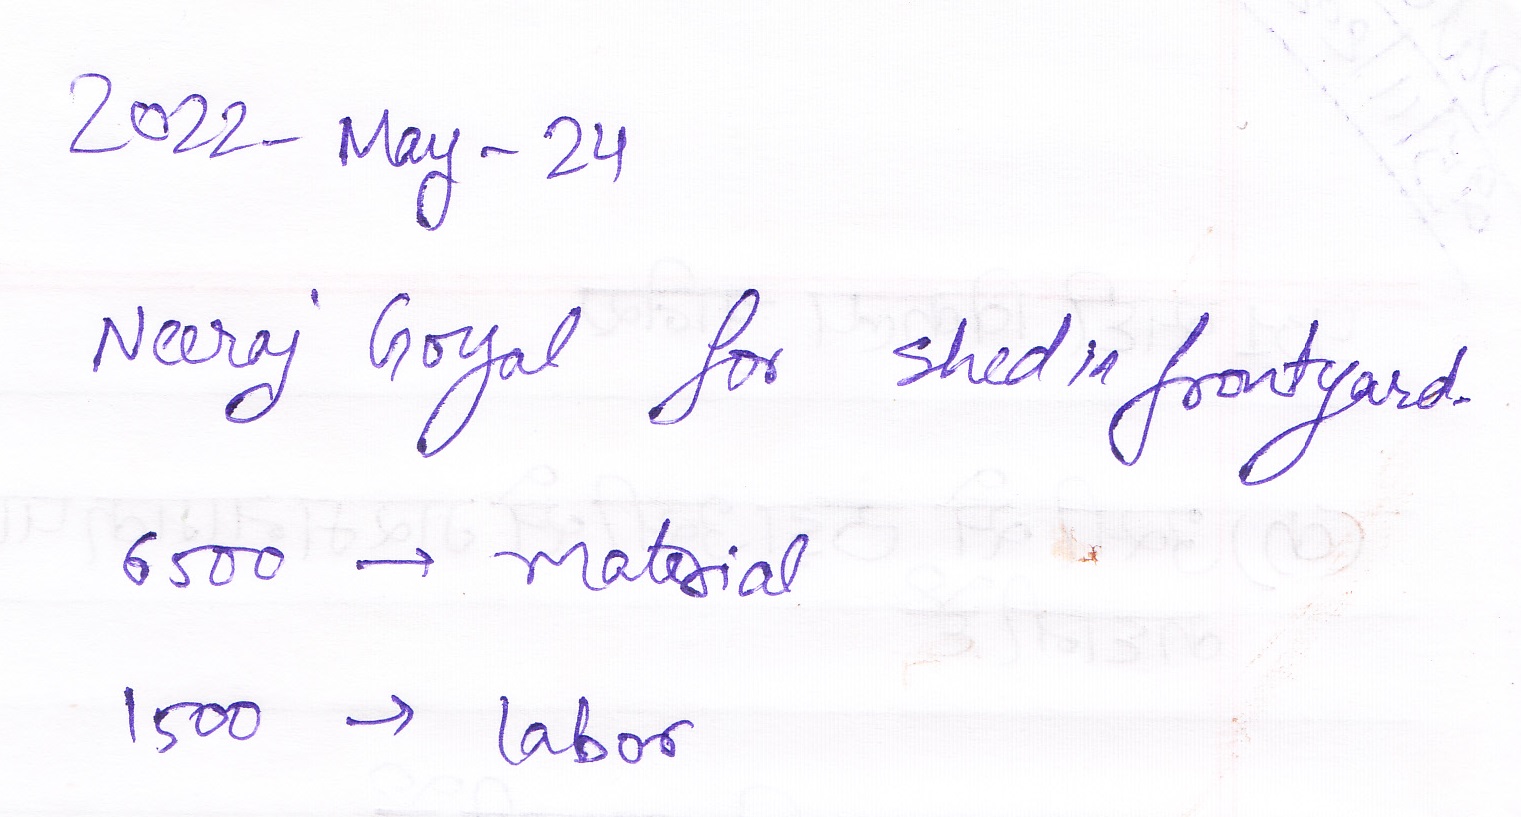 2022- May - 24
Neeraj Goyal for shed in frontyard.
6500 → material
1500 → labor